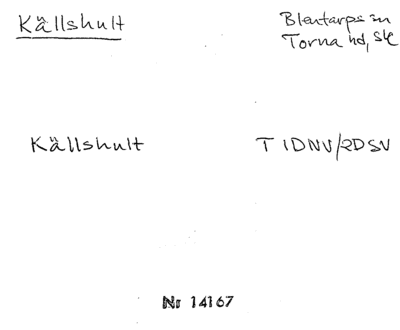 Källshult
Blentarps sn
Torna hd, Sk
Källshult
T 1DNV/2DSV
Nr 14167